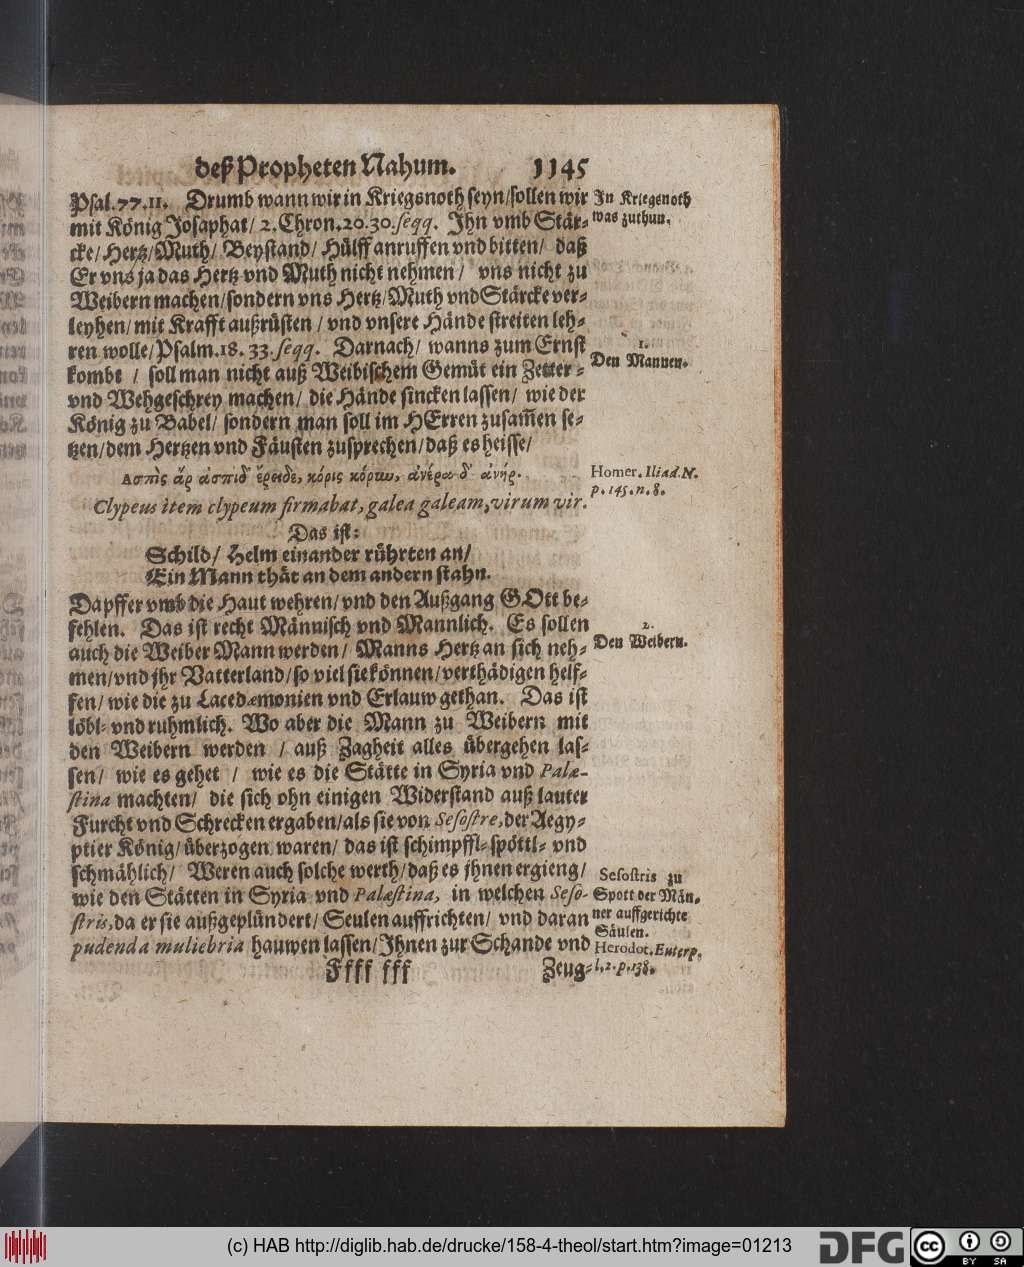 deß Propheten Nahum. 1145
Psal.77.11. Drumb wann wir in Kriegsnoth seyn/sollen wir
mit König Josaphat/ 2. Chron.20.30.seqq. Jhn vmb Stär-
cke/Hertz/Muth/ Beystand/ Hülff anruffen vnd bitten/ daß
Er vns ja das Hertz vnd Muth nicht nehmen/ vns nicht zu
Weibern machen/sondern vns Hertz/Muth vnd Stärcke ver-
leyhen/mit Krafft außrüsten/vnd vnsere Hände streiten leh-
ren wolle/Psalm.18. 33.seqq. Darnach/ wanns zum Ernst
kombt / soll man nicht auß Weibischem Gemüt ein Zetter-
vnd Wehgeschrey machen/ die Hände sincken lassen/ wie der
König zu Babel/ sondern man soll im HErren zusam̄en se-
tzen/dem Hertzen vnd Fäusten zusprechen/daß es heisse/
Ασπὶς ἄρ ἀσπίδ' ἔρειδε, κόρις κόρυν, ἀνέρα δ' ἀνήρ.
Clypeus item clypeum firmabat, galea galeam, virum vir.
Das ist:
Schild/ Helm einander rührten an/
Ein Mann thät an dem andern stahn.
Dapffer vmb die Haut wehren/vnd den Außgang GOtt be-
fehlen. Das ist recht Männisch vnd Mannlich. Es sollen
auch die Weiber Mann werden/ Manns Hertz an sich neh-
men/vnd jhr Vatterland/so viel sie können/verthädigen helf-
fen/wie die zu Lacedæmonien vnd Erlauw gethan. Das ist
löbl- vnd ruhmlich. Wo aber die Mann zu Weibern mit
den Weibern werden / auß Zagheit alles übergehen las-
sen/ wie es gehet / wie es die Stätte in Syria vnd Palæ-
stina machten/ die sich ohn einigen Widerstand auß lauter
Furcht vnd Schrecken ergaben/als sie von Sesostre, der Aegy-
ptier König/überzogen waren/ das ist schimpffl-spöttl- vnd
schmählich/ Weren auch solche werth/daß es jhnen ergieng/
wie den Stätten in Syria vnd Palæstina, in welchen Seso-
stris, da er sie außgeplündert/ Seulen auffrichten/ vnd daran
pudenda muliebria hauwen lassen/Jhnen zur Schande vnd
Ffff fff Zeug-
In Kriegsnoth
was zuthun.
1.
Den Mannen.
Homer. Iliad. N.
p. 145. n. 8.
2.
Den Weibern.
Sesostris zu
Spott der Män-
ner auffgerichte
Säulen.
Herodot. Euterp.
l. 2. p. 138.
(c) HAB http://diglib.hab.de/drucke/158-4-theol/start.htm?image=01213
DFG
cc BY SA